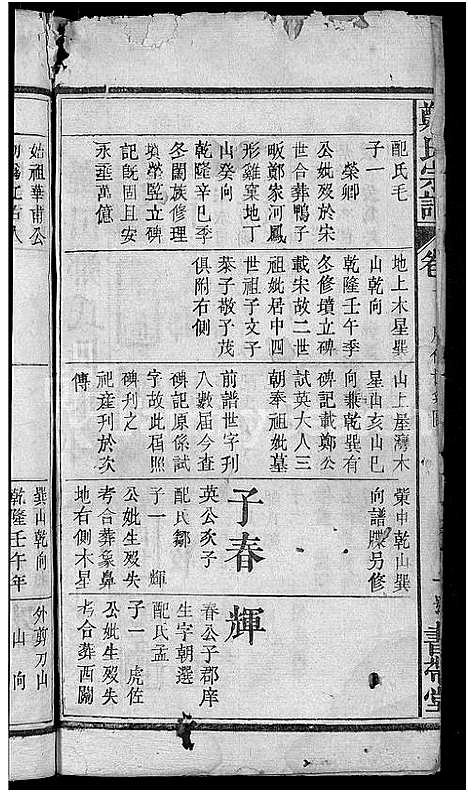 鄭氏宗譜
卷
書帶堂
配氏毛
子一
榮卿
公妣歿於宋
世合葬鴨子
畈鄭家河鳳
形雞窠地丁
山癸向
乾隆辛巳季
冬閤族修理
墳塋監立碑
記旣固且安
永垂萬億
地上木星巽
山乾向
乾隆壬午季
冬修墳立碑
載朱故二世
祖妣居中四
世祖子文子
蓁子敬子茂
俱附右側
山上屋灣木
星山亥山巳
向兼乾巽有
碑記載鄭公
試英大人三
朝奉祖妣墓
前譜世字刊
八數屆今查
碑記原係試
字故此屆照
碑刋之
祀產刊於次
傳
乾山巽
向譜牒另修
子春
英公次子
配氏鄒
子一 輝
公妣生歿失
考合葬象鼻
地右側木星
輝
春公子郡庠
生字朝選
配氏孟
子一 虎佐
公妣生歿失
考合葬西關
始祖華甫公
巽山乾向
乾隆壬午年
外剪刀山
山向